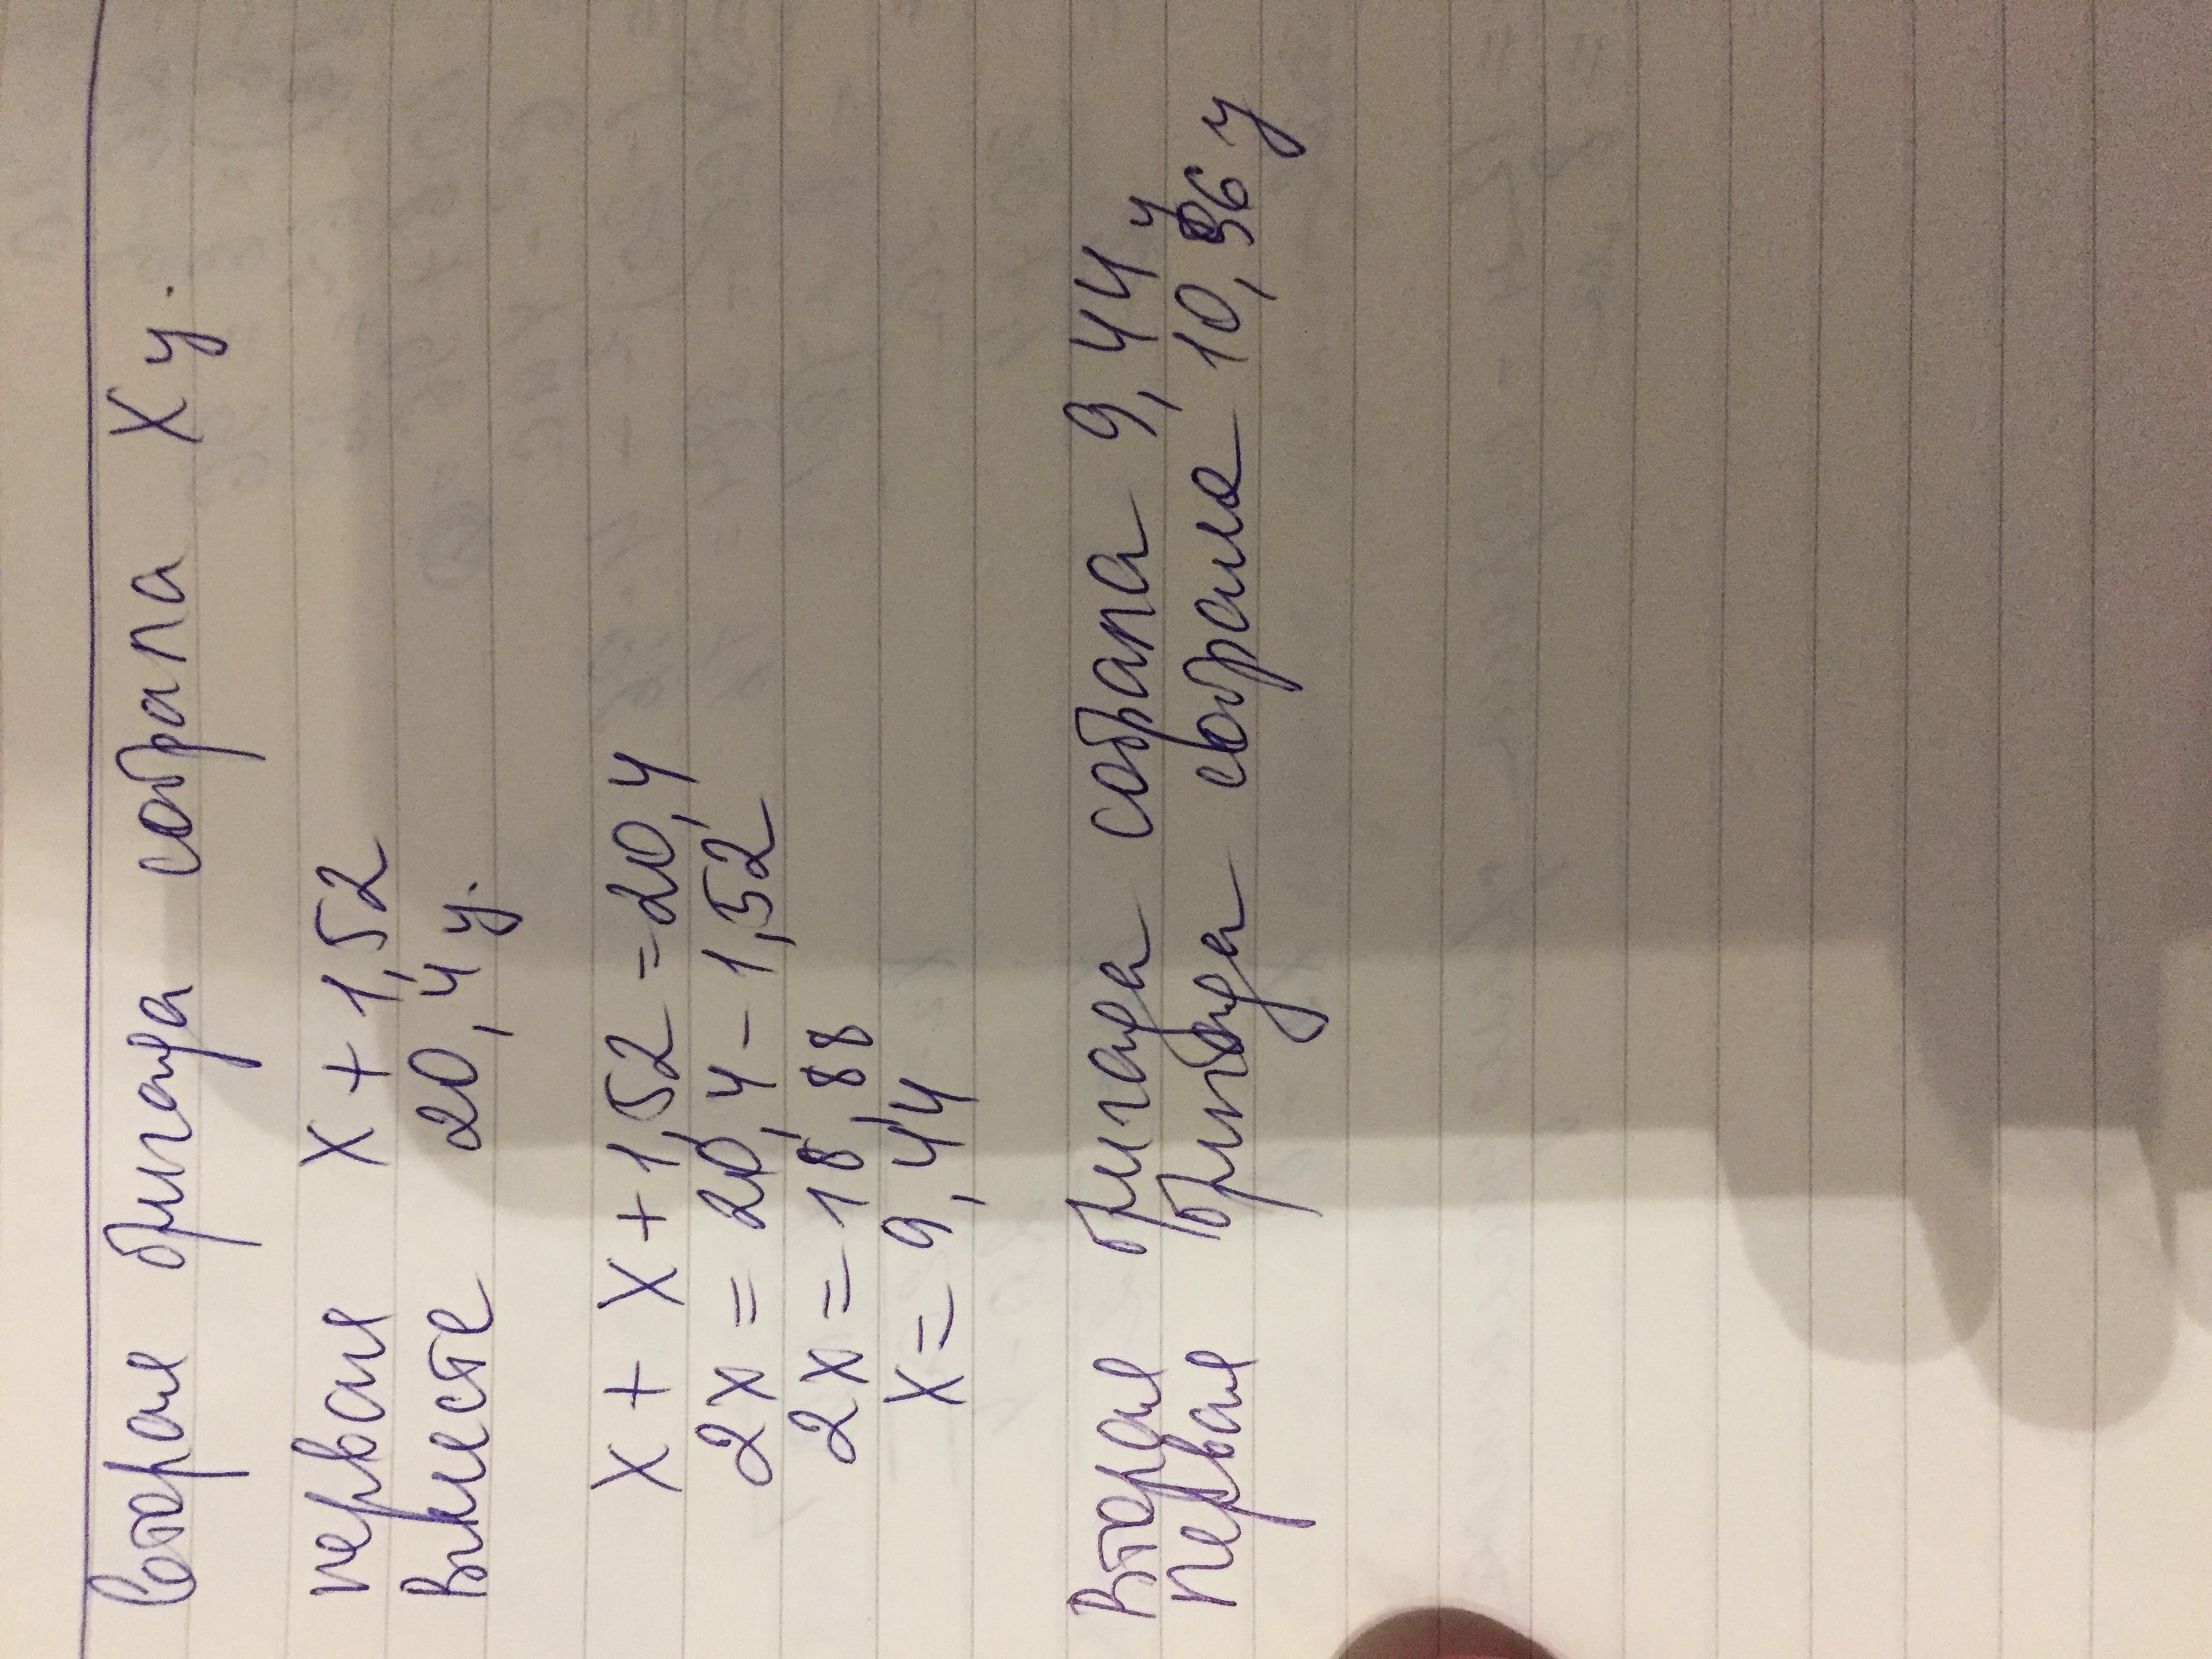 Вторая бригада собрала X ц.
первая X + 1,52
Вместе 20,4 ц.
X + X + 1,52 = 20,4
2x = 20,4 - 1,52
2x = 18,88
X = 9,44
Вторая бригада собрала 9,44 ц
первая бригада собрала 10,96 ц